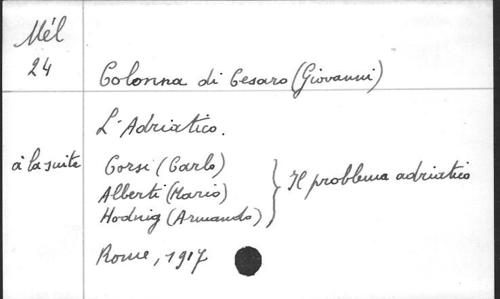 Mél
24
Colonna di Cesaro (Giovanni)
L'Adriatico.
à la suite
Corsi (Carlo)
Alberti (Mario)
Hodnig (Armando)
} Il problema adriatico
Rome, 1917